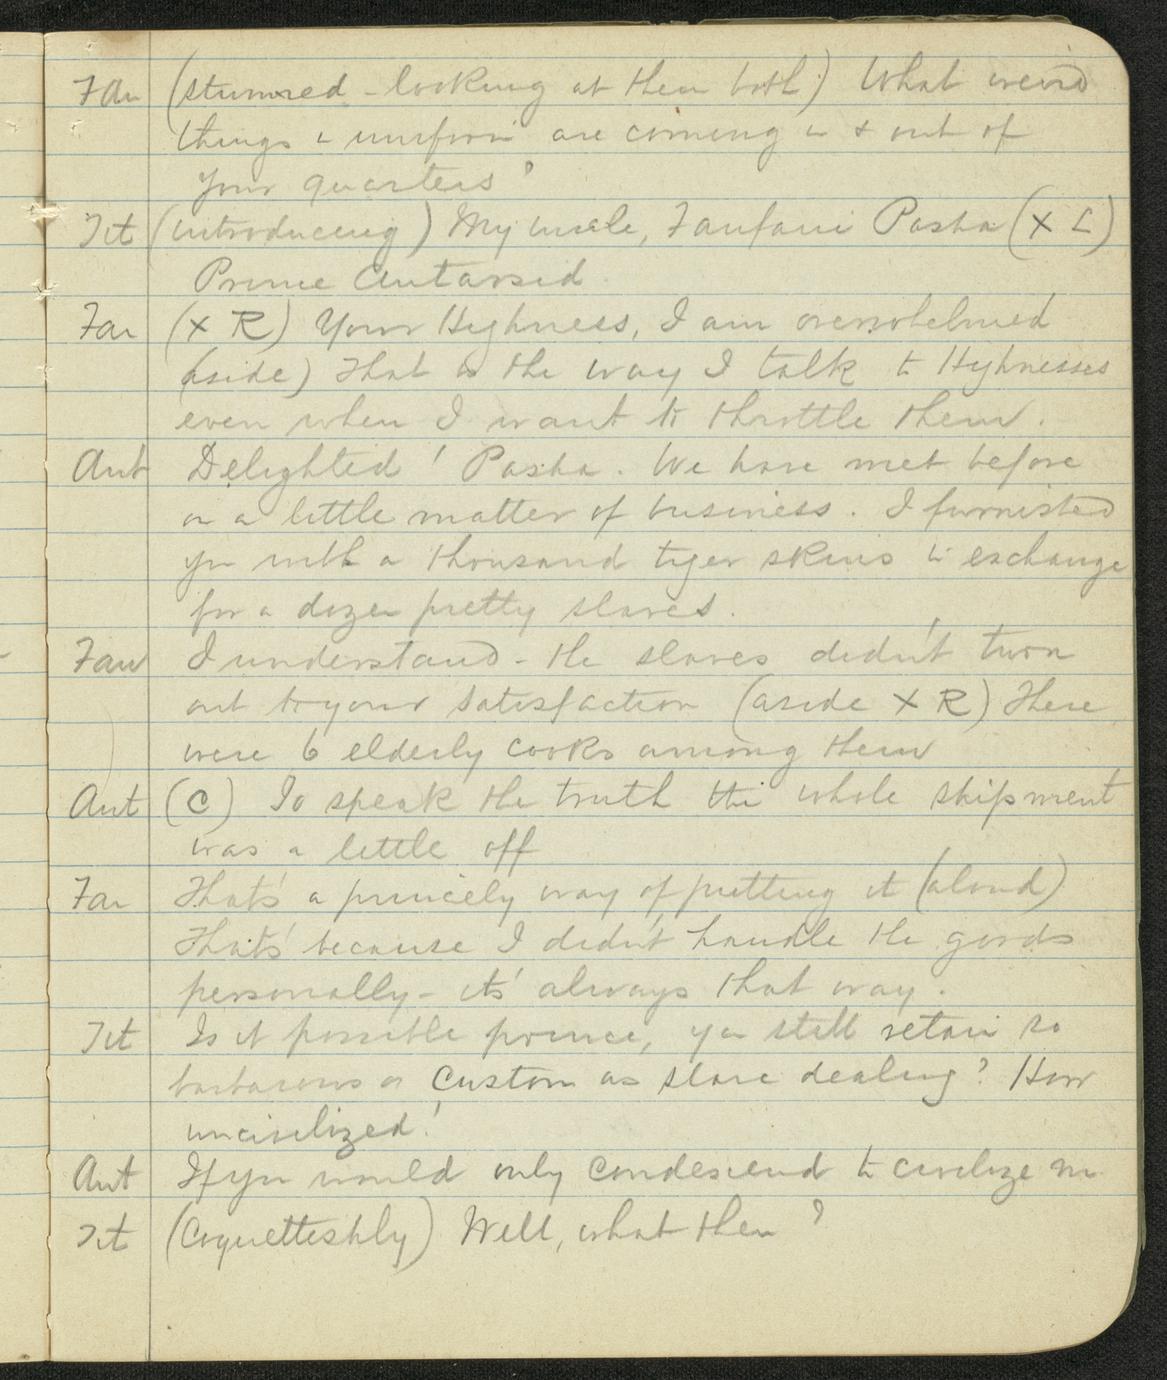 Fan (stunned - looking at them both) What weird
things in uniform are coming in & out of
your quarters?
Tit (introducing) My uncle, Fanfani Pasha (X L)
Prince Antarsid
Fan (X R) Your Highness, I am overwhelmed
(aside) That is the way I talk to Highnesses
even when I want to throttle them.
Ant Delighted! Pasha. We have met before
on a little matter of business. I furnished
you with a thousand tiger skins in exchange
for a dozen pretty slaves.
Fan I understand - the slaves didn't turn
out to your satisfaction (aside X R) There
were 6 elderly cooks among them
Ant (C) To speak the truth the whole shipment
was a little off
Fan That's a princely way of putting it (aloud)
That's because I didn't handle the goods
personally - it's always that way.
Tit Is it possible prince, you still retain so
barbarous a custom as slave dealing? How
uncivilized!
Ant If you would only condescend to civilize me
Tit (Coquettishly) Well, what then?